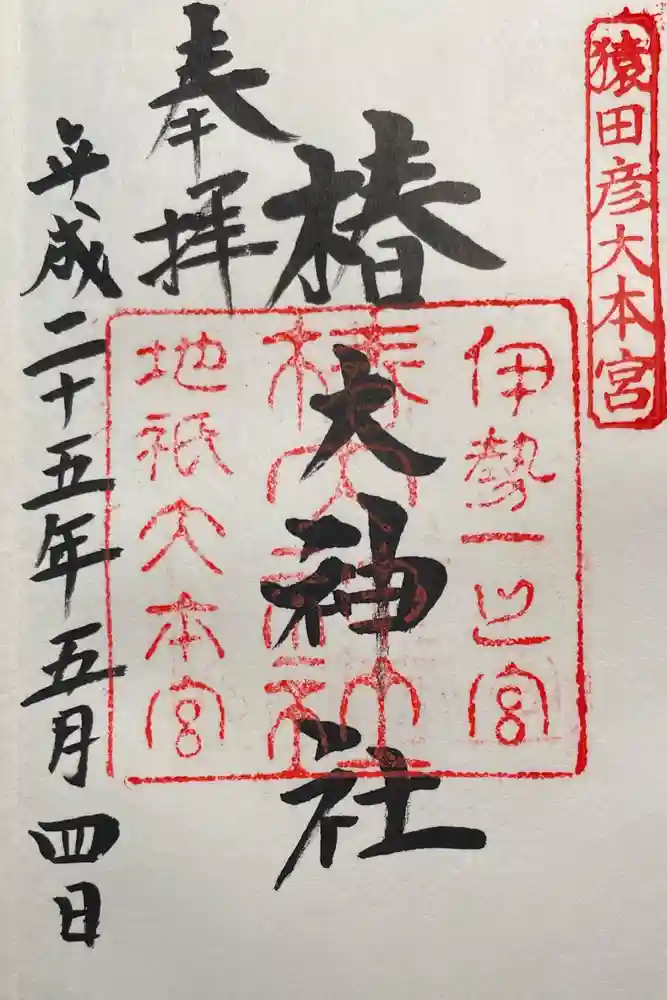 猿田彦大本宮
奉拝
椿大神社
伊勢一之宮
椿大神社
地祇大本宮
平成二十五年五月四日